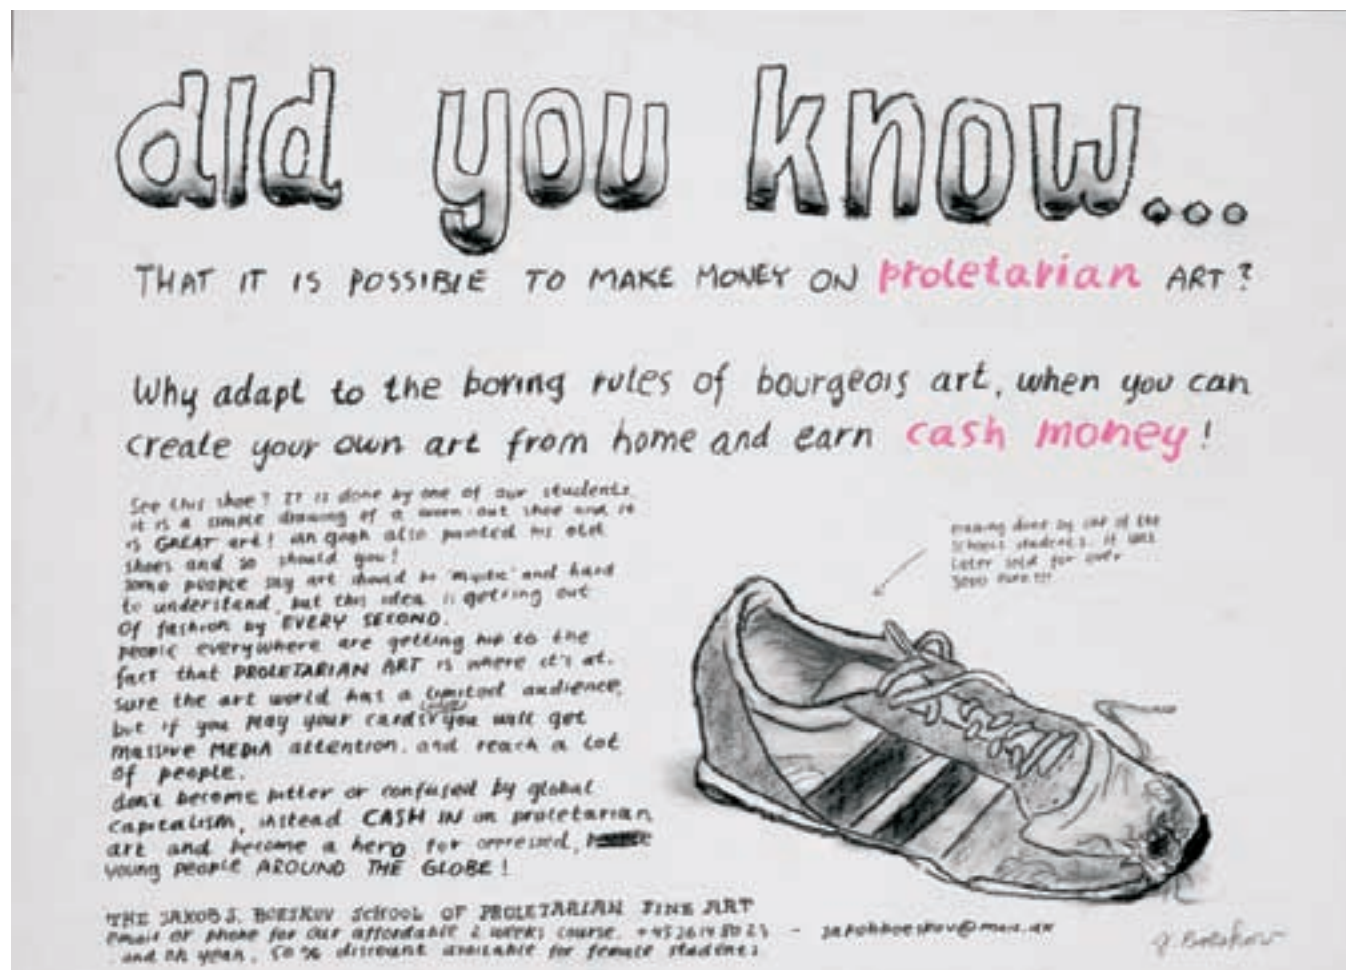 did you know...
THAT IT IS POSSIBLE TO MAKE MONEY ON proletarian ART?
Why adapt to the boring rules of bourgeois art, when you can
create your own art from home and earn cash money!
See this shoe? IT is done by one of our students
it is a simple drawing of a worn out shoe and it
is GREAT art! van gogh also painted his old
shoes and so should you!
some people say art should be "mystic" and hard
to understand, but this idea is getting out
Of fashion by EVERY SECOND.
people everywhere are getting hip to the
fact that PROLETARIAN ART is where it's at.
sure the art world has a limited audience,
but if you play your cards you will get
massive MEDIA attention, and reach a lot
of people.
don't become bitter or confused by global
capitalism, instead CASH IN on proletarian
art and become a hero for oppressed,
young people AROUND THE GLOBE!
drawing done by one of the
schools students. it was
later sold for over
3000 euro!!!
THE JAKOB S. BOESKOV SCHOOL OF PROLETARIAN FINE ART
email or phone for our affordable 2 weeks course. - jakobboeskov@mail.dk
and oh yeah, 50 % discount available for female students
J. Boeskov